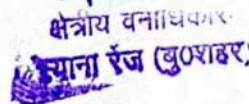 क्षेत्रीय वनाधिकार
स्याना रेंज (बु०शहर)